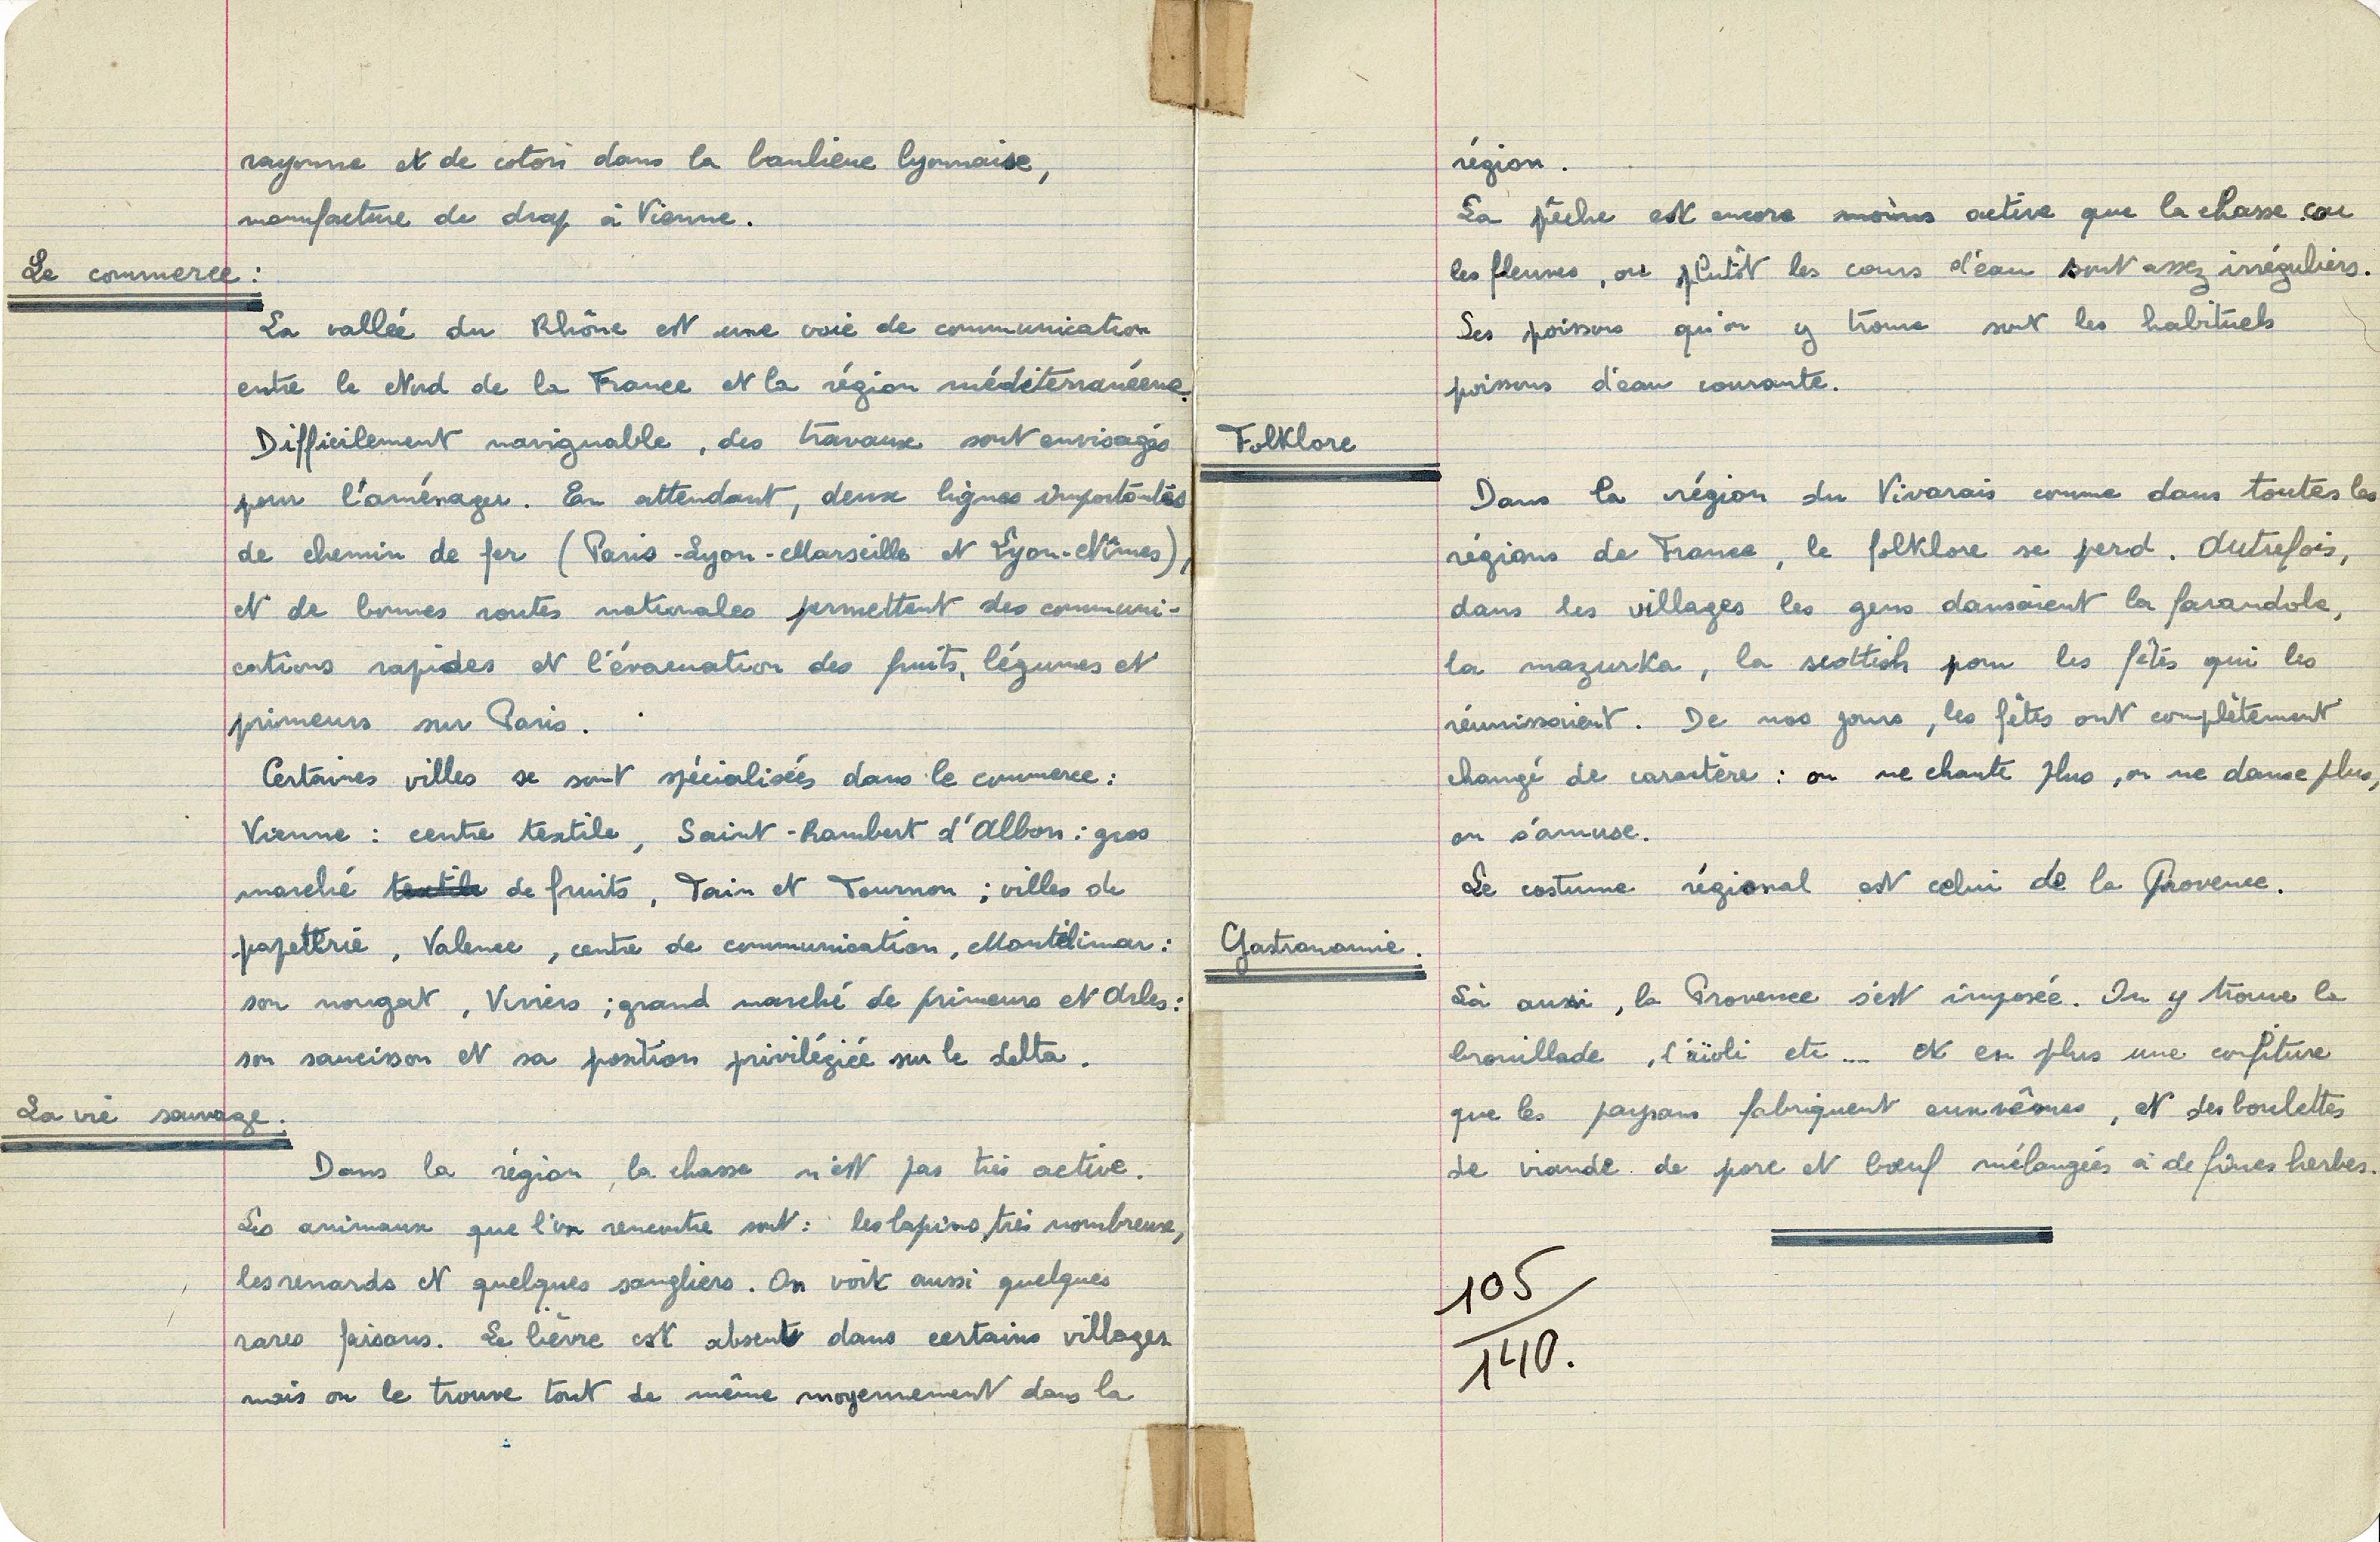 rayonne et de coton dans la banlieue lyonnaise,
manufacture de drap à Vienne.
Le commerce :
La vallée du Rhône est une voie de communication
entre le Nord de la France et la région méditerranéene.
Difficilement naviguable, des travaux sont envisagés
pour l'aménager. En attendant, deux lignes importantes
de chemin de fer (Paris-Lyon-Marseille et Lyon-Nîmes),
et de bonnes routes nationales permettent des communi-
cations rapides et l'évacuation des fruits, légumes et
primeurs sur Paris.
Certaines villes se sont spécialisées dans le commerce :
Vienne : centre textile, Saint-Rambert d'Albon : gros
marché textile de fruits, Tain et Tournon ; villes de
papetterie, Valence, centre de communication, Montélimar :
son nougat, Viviers ; grand marché de primeurs et Arles :
son saucisson et sa position privilégiée sur le delta.
La vie sauvage.
Dans la région, la chasse n'est pas très active.
Les animaux que l'on rencontre sont : les lapins, très nombreux,
les renards et quelques sangliers. On voit aussi quelques
rares faisans. Le lièvre est absent dans certains villages
mais on le trouve tout de même moyennement dans la
région.
La pêche est encore moins active que la chasse car
les fleuves, ou plutôt les cours d'eau sont assez irréguliers.
Les poissons qu'on y trouve sont les habituels
poissons d'eau courante.
Folklore
Dans la région du Vivarais comme dans toutes les
régions de France, le folklore se perd. Autrefois,
dans les villages les gens dansaient la farandole,
la mazurka, la scottish pour les fêtes qui les
réunissaient. De nos jours, les fêtes ont complètement
changé de caractère : on ne chante plus, on ne danse plus,
on s'amuse.
Le costume régional est celui de la Provence.
Gastronomie.
Là aussi, la Provence s'est imposée. On y trouve la
brouillade, l'aïoli etc .... et en plus une confiture
que les paysans fabriquent eux-mêmes, et des boulettes
de viande de porc et bœuf mélangées à de fines herbes.
105
140.